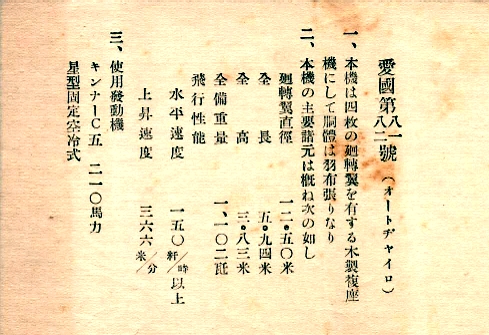 愛國第八一八二號（オートヂャイロ）
一、本機は四枚の廻轉翼を有する木製複座
機にして胴體は羽布張りなり
二、本機の主要諸元は概ね次の如し
廻轉翼直徑 一二・五〇米
全長 五・九四米
全高 三・八三米
全備重量 一、一〇二瓩
飛行性能
水平速度 一五〇粁/時以上
上昇速度 三六六米/分
三、使用發動機
キンナーＣ五 二一〇馬力
星型固定空冷式